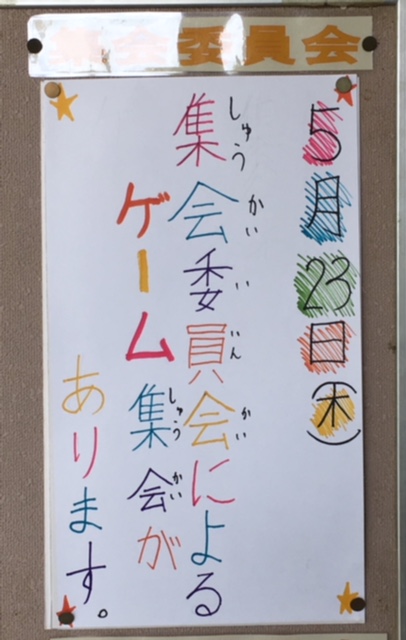 集会委員会
5月23日(木)
集会委員会による
しゅうかいいいんかい
ゲーム集会が
しゅうかい
あります。